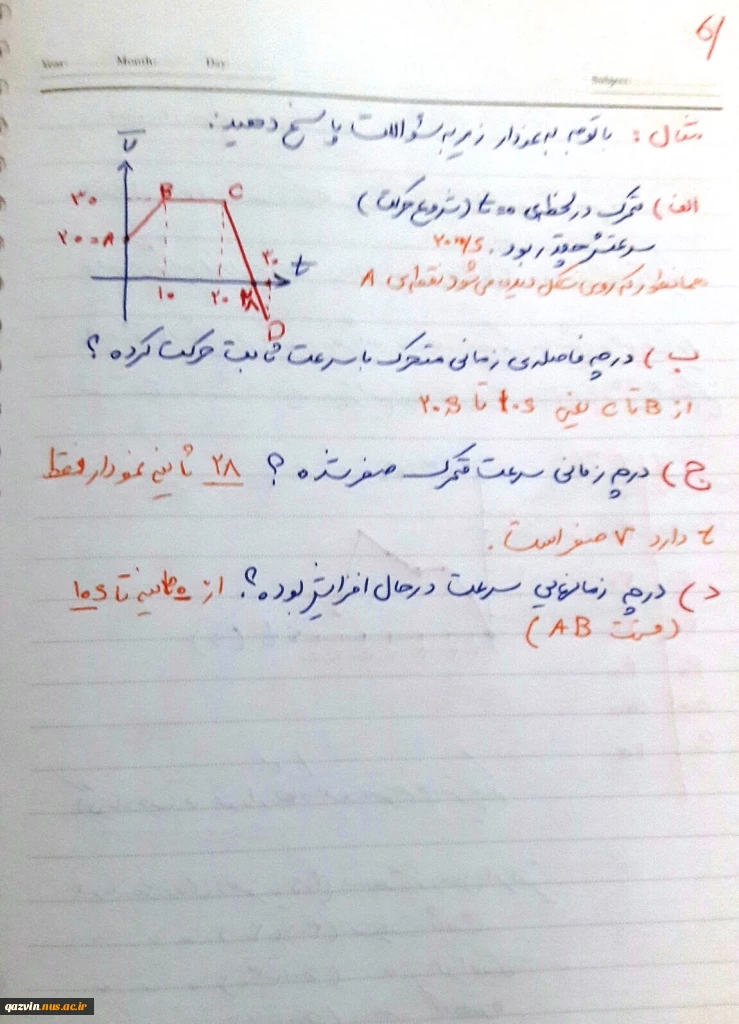 6/
Year: Month: Day: Subject:
مثال: با توجه به نمودار زیر به سؤالات پاسخ دهید:
v
۳۰ B C
۲۰=A
۱۰ ۲۰ ۲۸ ۳۰ t
D
الف) متحرک در لحظه‌ی t=0 (شروع حرکت)
سرعتش چقدر بود. ۲۰m/s
همانطور که روی شکل دیده می‌شود نقطه‌ی A
ب) در چه فاصله‌ی زمانی متحرک با سرعت ثابت حرکت کرده؟
از B تا C یعنی ۱۰s تا ۲۰s
ج) در چه زمانی سرعت متحرک صفر شده؟ ۲۸ ثانیه نمودار فقط
t دارد v صفر است.
د) در چه زمانهایی سرعت در حال افزایش بوده؟ از ۰ ثانیه تا ۱۰s
(قسمت AB)
qazvin.nus.ac.ir